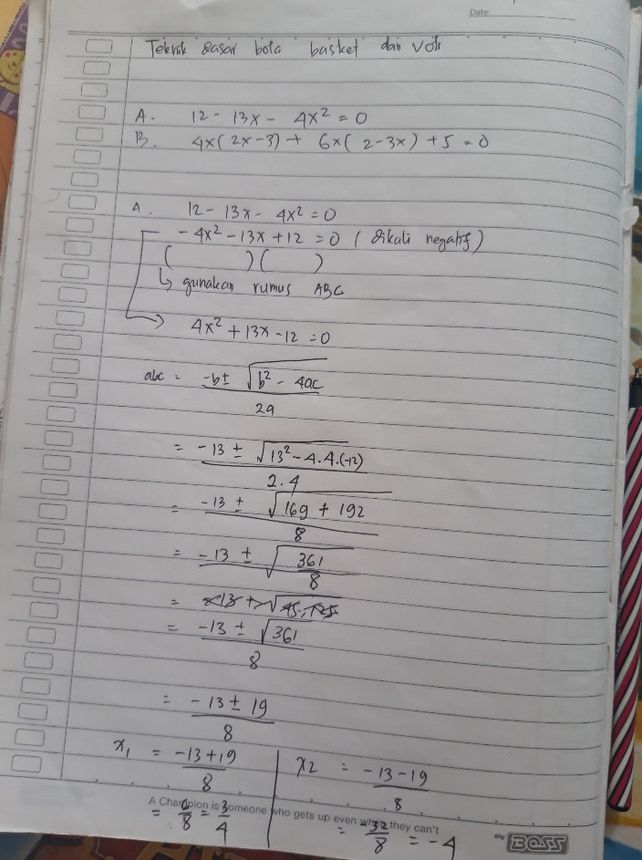 Date:
Teknik dasar bola basket dan voli
A. 12 - 13x - 4x² = 0
B. 4x(2x-3) + 6x(2-3x) + 5 = 0
A. 12 - 13x - 4x² = 0
- 4x² - 13x + 12 = 0 (dikali negatif)
( )( )
↳ gunakan rumus ABC
→ 4x² + 13x - 12 = 0
abc = -b ± √b² - 4ac / 2a
= -13 ± √13² - 4.4.(-12) / 2.4
= -13 ± √169 + 192 / 8
= -13 ± √361/8
= -13 ± √45,125
= -13 ± √361 / 8
= -13 ± 19 / 8
x₁ = -13+19 / 8 x2 = -13-19 / 8
= 6/8 = 3/4 = -32/8 = -4
A Champion is someone who gets up even when they can't
my BOSS